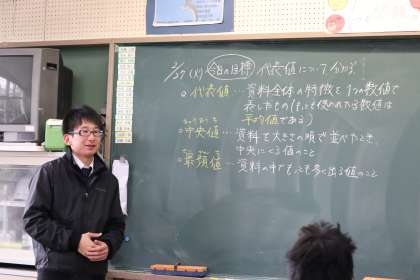 2/27(火) 今日の目標 代表値について分かる
○代表値…資料全体の特徴を1つの数値で
表したもの(もっとも使われる数値は
平均値である)
ちゅうおうち
○中央値…資料を大きさの順で並べたとき、
中央にくる値のこと
○最頻値…資料の中でもっとも多く出る値のこと